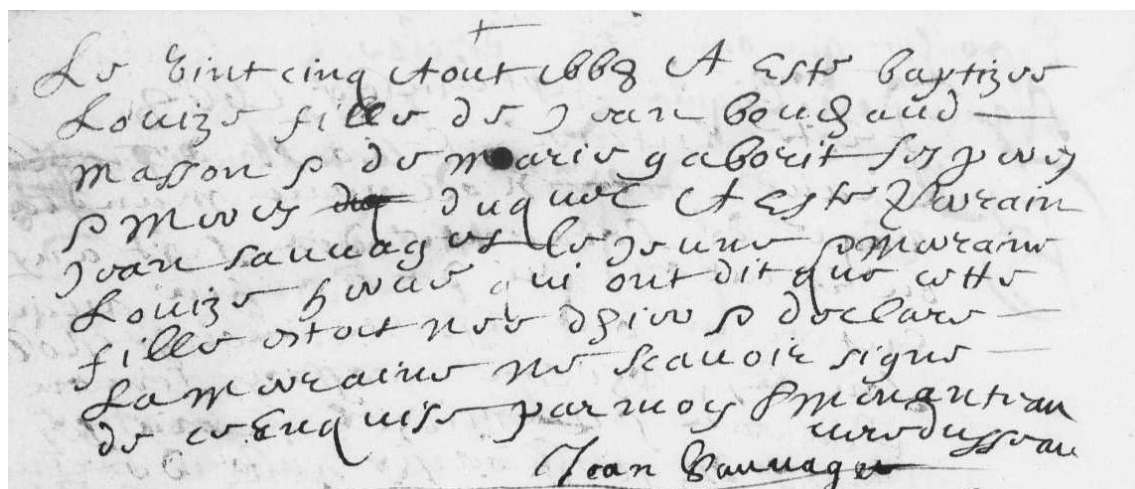 Le vint cinq Aout 1668 A este baptizee
Louize fille de Jean bouhaud
masson & de marie gaborit ses peres
& meres duquel A este Parain
Jean sauvaget le Jeune & maraine
Louize qui ont dit que cette
fille estoit nee dhier & declare
La maraine ne scavoir signe
de ce Enquise par moy
cure dusseau
Jean Sauvaget